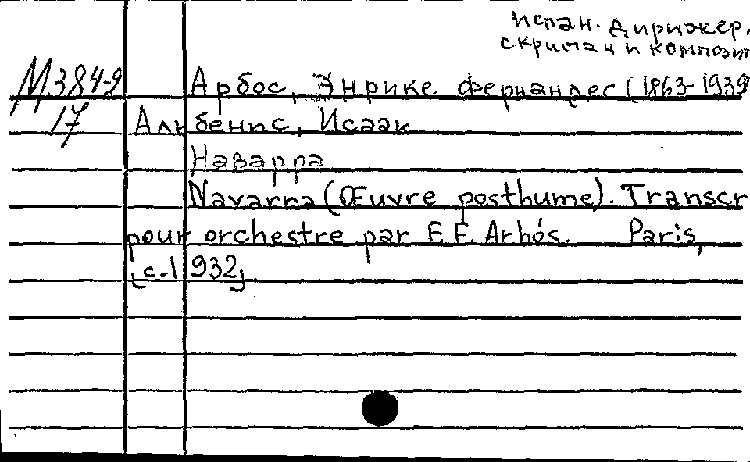 испан. дирижер,
скрипач и композит
М384-9 Арбос, Энрике Фернандес (1863-1939
17 Альбенис, Исаак
Наварра
Navarra (Œuvre posthume). Transcr
pour orchestre par E. F. Arbós. Paris,
[c.1932]